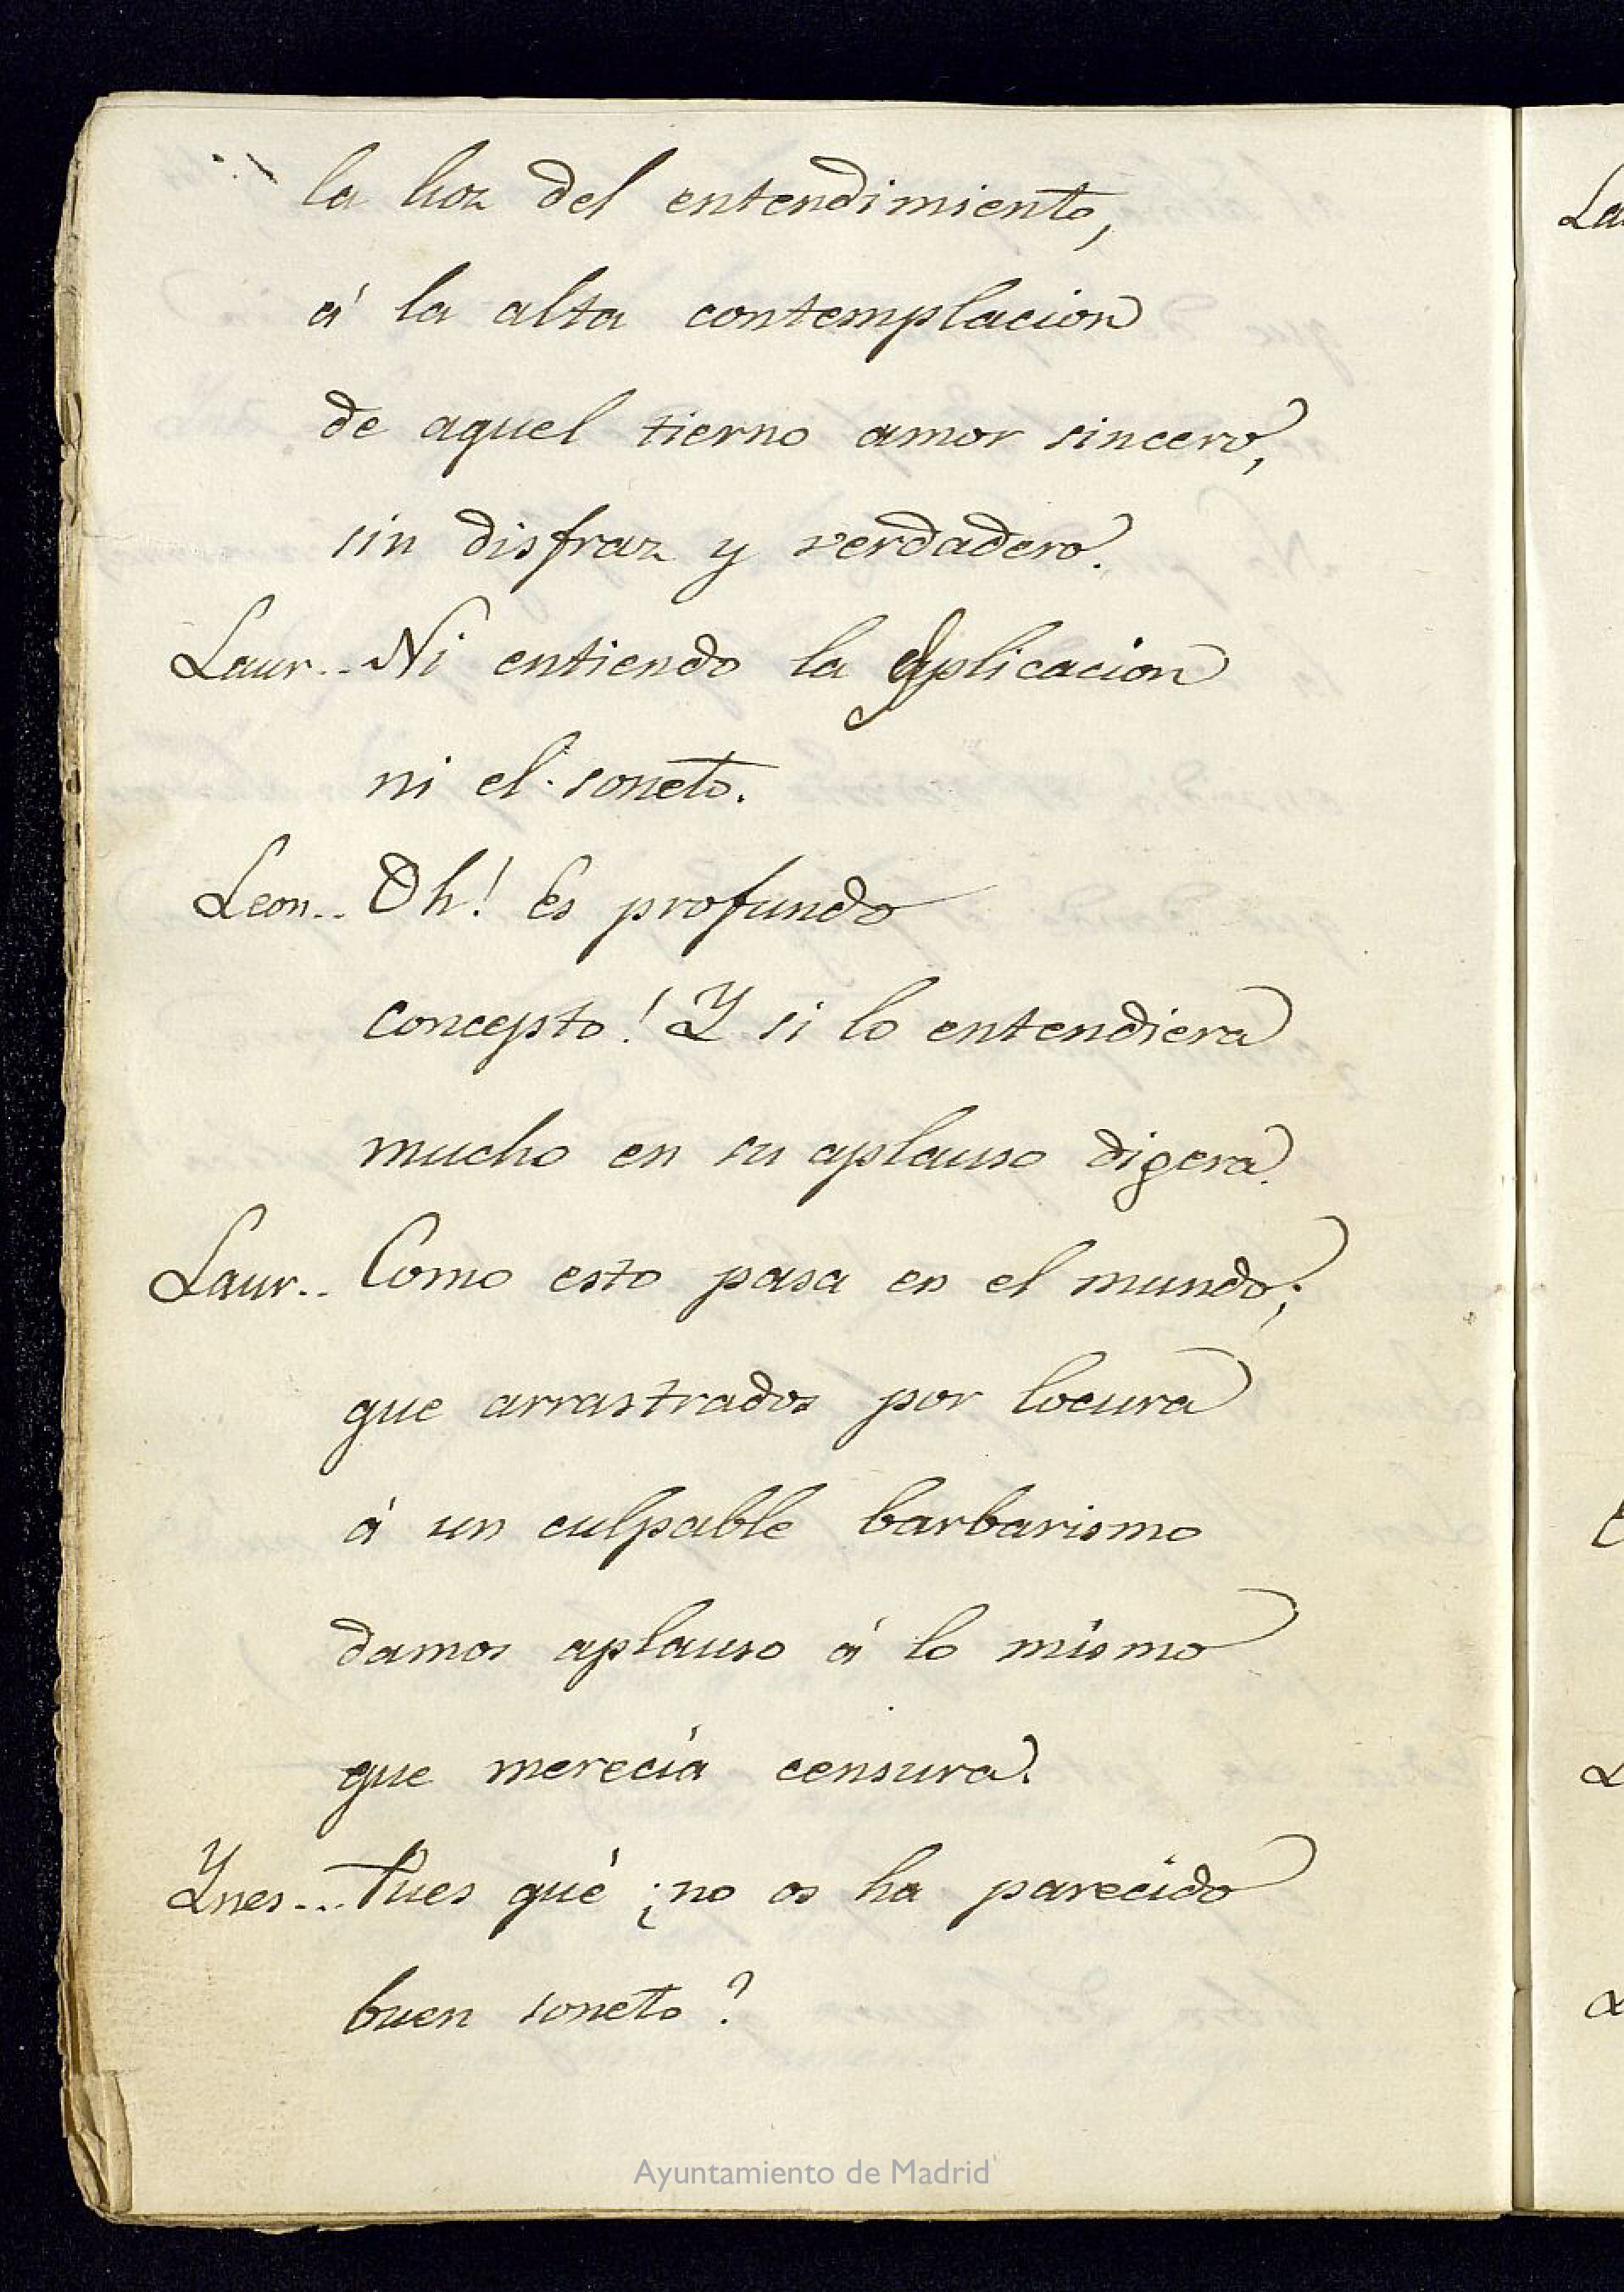 la hoz del entendimiento,
á la alta contemplacion
de aquel tierno amor sincero,
sin disfraz y verdadero.
Laur.. Ni entiendo la aplicacion
ni el soneto.
Leon.. Oh! Es profundo
concepto! Y si lo entendiera
mucho en su aplauso digera.
Laur.. Como esto pasa en el mundo;
que arrastrados por locura
á un culpable barbarismo
damos aplauso á lo mismo
que merecia censura.
Ynes... Pues qué ¿no os ha parecido
buen soneto?
La
Ayuntamiento de Madrid